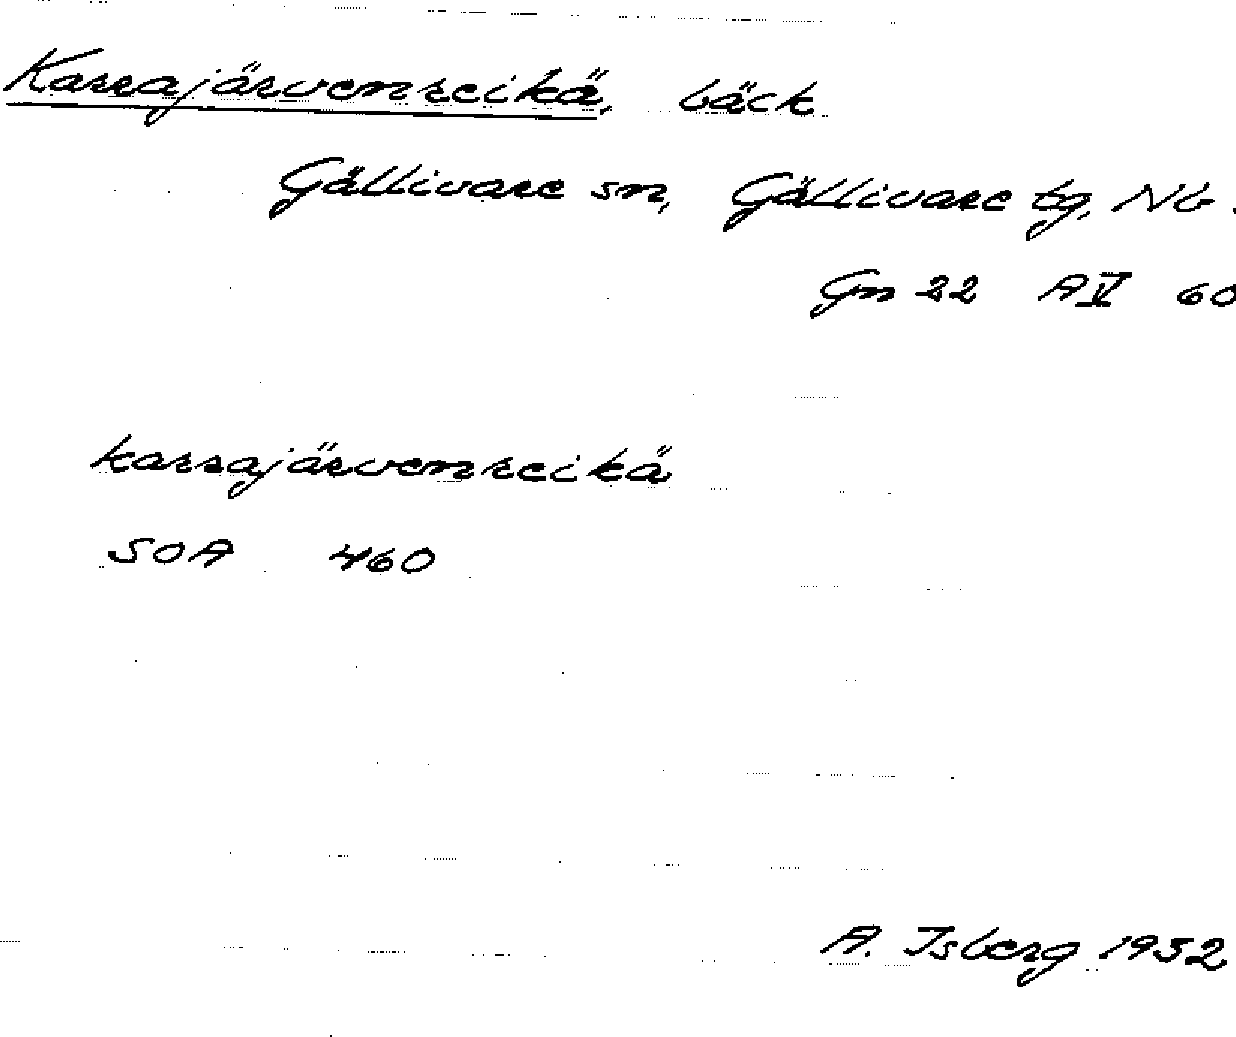 Karrajärvenreikä, bäck
Gällivare sn, Gällivare tg, Nb.
Gm 22 AV 60
karrajärvenreikä
SOA 460
A. Isberg 1952